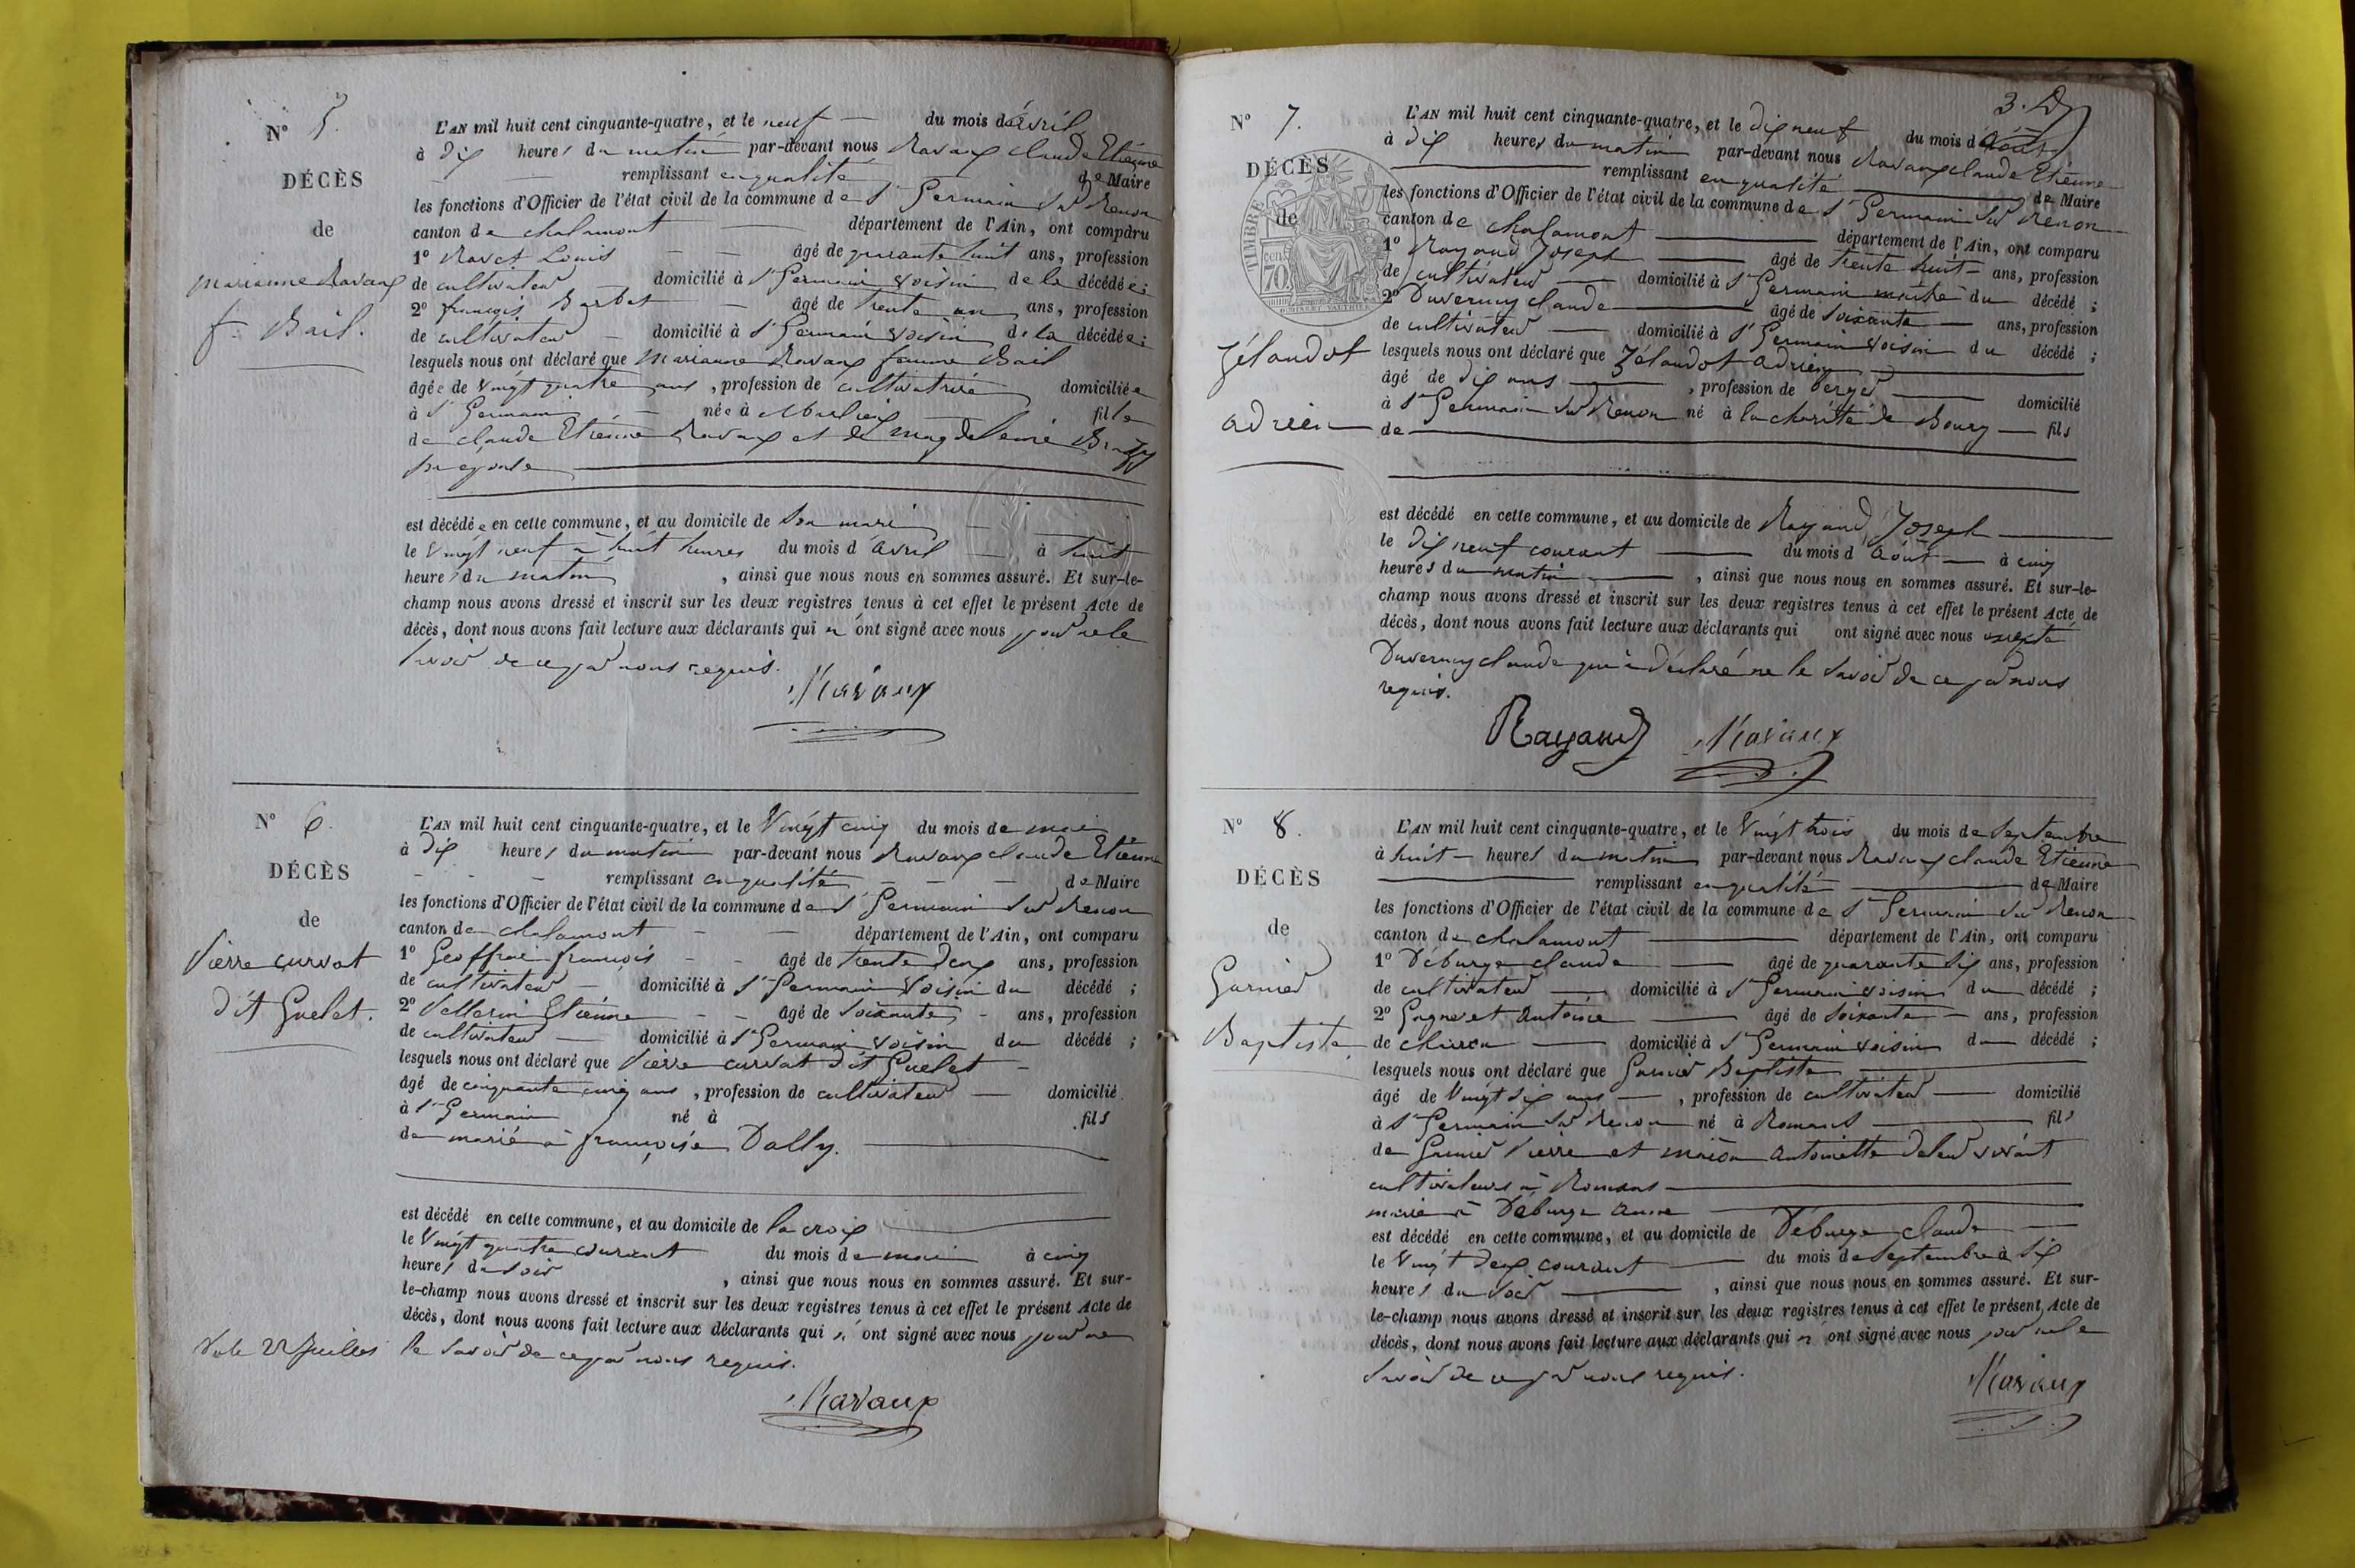 N° 5.
DÉCÈS
de
Marianne Ravaux
fe Bail.
L'AN mil huit cent cinquante-quatre, et le neuf du mois d'avril
à dix heures du matin par-devant nous Ravaux Claude Etienne
remplissant en qualité de Maire
les fonctions d'Officier de l'état civil de la commune de St Germain sur Renon
canton de chalamont département de l'Ain, ont comparu
1° Louis âgé de quarante huit ans, profession
de cultivateur domicilié à St Germain voisin de la décédée ;
2° françois Barbet âgé de trente un ans, profession
de cultivateur domicilié à St Germain voisin de la décédée ;
lesquels nous ont déclaré que Marianne Ravaux femme Bail
âgée de Vingt quatre ans, profession de cultivatrice domiciliée
à St Germain née à Marlieux fille
de Claude Etienne Ravaux et de Magdeleine
son épouse
est décédée en cette commune, et au domicile de son mari
le Vingt neuf à huit heures du mois d'avril à huit
heures du matin, ainsi que nous nous en sommes assuré. Et sur-le-
champ nous avons dressé et inscrit sur les deux registres tenus à cet effet le présent Acte de
décès, dont nous avons fait lecture aux déclarants qui n'ont signé avec nous pour ne le
savoir de ce par nous requis.
Ravaux
N° 6.
DÉCÈS
de
Pierre curvat
dit Guelet.
L'AN mil huit cent cinquante-quatre, et le Vingt cinq du mois de mai
à dix heures du matin par-devant nous Ravaux claude Etienne
remplissant en qualité de Maire
les fonctions d'Officier de l'état civil de la commune de St Germain sur Renon
canton de chalamont département de l'Ain, ont comparu
1° Geoffrai françois âgé de trente deux ans, profession
de cultivateur domicilié à St Germain voisin du décédé ;
2° Etienne âgé de soixante ans, profession
de cultivateur domicilié à St Germain voisin du décédé ;
lesquels nous ont déclaré que Pierre curvat dit Guelet
âgé de cinquante cinq ans, profession de cultivateur domicilié
à St Germain né à fils
de marié à françoise Dally.
est décédé en cette commune, et au domicile de la croix
le Vingt quatre courant du mois de mai à cinq
heures du soir, ainsi que nous nous en sommes assuré. Et sur-
le-champ nous avons dressé et inscrit sur les deux registres tenus à cet effet le présent Acte de
décès, dont nous avons fait lecture aux déclarants qui n'ont signé avec nous pour ne
le savoir de ce par nous requis.
Ravaux
3.
N° 7.
DÉCÈS
de
Zélandot
adrien
TIMBRE
70
L'AN mil huit cent cinquante-quatre, et le dix neuf du mois d'Août
à dix heures du matin par-devant nous Ravaux claude Etienne
remplissant en qualité de Maire
les fonctions d'Officier de l'état civil de la commune de St Germain sur Renon
canton de chalamont département de l'Ain, ont comparu
1° Rayand Joseph âgé de trente huit ans, profession
de cultivateur domicilié à St Germain maitre du décédé ;
2° Duvernay claude âgé de soixante ans, profession
de cultivateur domicilié à St Germain voisin du décédé ;
lesquels nous ont déclaré que Zélandot adrien
âgé de dix ans, profession de berger domicilié
à St Germain sur Renon né à la charité de Bourg fils
de
est décédé en cette commune, et au domicile de Rayand Joseph
le dix neuf courant du mois d'Août à cinq
heures du matin, ainsi que nous nous en sommes assuré. Et sur-le-
champ nous avons dressé et inscrit sur les deux registres tenus à cet effet le présent Acte de
décès, dont nous avons fait lecture aux déclarants qui ont signé avec nous excepté
Duvernay claude qui a déclaré ne le savoir de ce par nous
requis.
Rayand Ravaux
N° 8.
DÉCÈS
de
Garnier
Baptiste
L'AN mil huit cent cinquante-quatre, et le Vingt trois du mois de Septembre
à huit heures du matin par-devant nous Ravaux claude Etienne
remplissant en qualité de Maire
les fonctions d'Officier de l'état civil de la commune de St Germain sur Renon
canton de chalamont département de l'Ain, ont comparu
1° Déburge claude âgé de quarante six ans, profession
de cultivateur domicilié à St Germain voisin du décédé ;
2° antoine âgé de soixante ans, profession
de charron domicilié à St Germain voisin du décédé ;
lesquels nous ont déclaré que Garnier Baptiste
âgé de Vingt six ans, profession de cultivateur domicilié
à St Germain sur Renon né à Romans fils
de Garnier Pierre et antoinette de leur vivant
cultivateurs à Romans
marié à Déburge anne
est décédé en cette commune, et au domicile de Déburge claude
le Vingt deux courant du mois de Septembre à six
heures du soir, ainsi que nous nous en sommes assuré. Et sur-
le-champ nous avons dressé et inscrit sur les deux registres tenus à cet effet le présent Acte de
décès, dont nous avons fait lecture aux déclarants qui n'ont signé avec nous pour ne le
savoir de ce par nous requis.
Ravaux